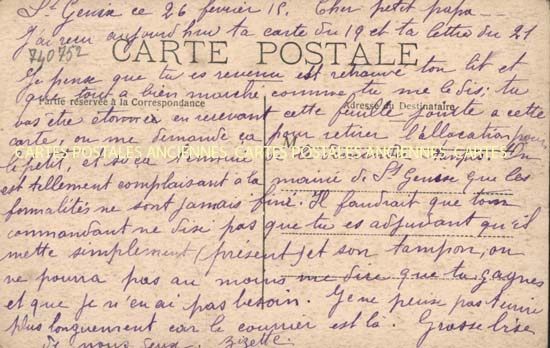 St Geusse ce 26 février 15. Cher petit papa
J'ai reçu aujourd'hui ta carte du 19 et ta lettre du 21
740752
CARTE POSTALE
Je pense que tu es revenu et retrouvé ton lit et
que tout a bien marché comme tu me le dis; tu
Partie réservée à la Correspondance
Adresse du Destinataire
vas être étonné en recevant cette feuille jointe a cette
carte, on me demande ça pour retirer l'allocation pour
M
CARTES POSTALES ANCIENNES CARTES POSTALES ANCIENNES CARTES
le petit, et comme
est tellement complaisant à la mairie de St Geusse que les
formalités ne sont jamais fini. Il faudrait que ton
commandant ne dise pas que tu es adjudant qu'il
mette simplement (présent) et son tampon, on
ne pourra pas au moins me dire que tu gagnes
et que je n'en ai pas besoin. Je ne peux pas t'écrire
plus longuement car le courrier est là. Grosse bise
de nous deux. Zizette.